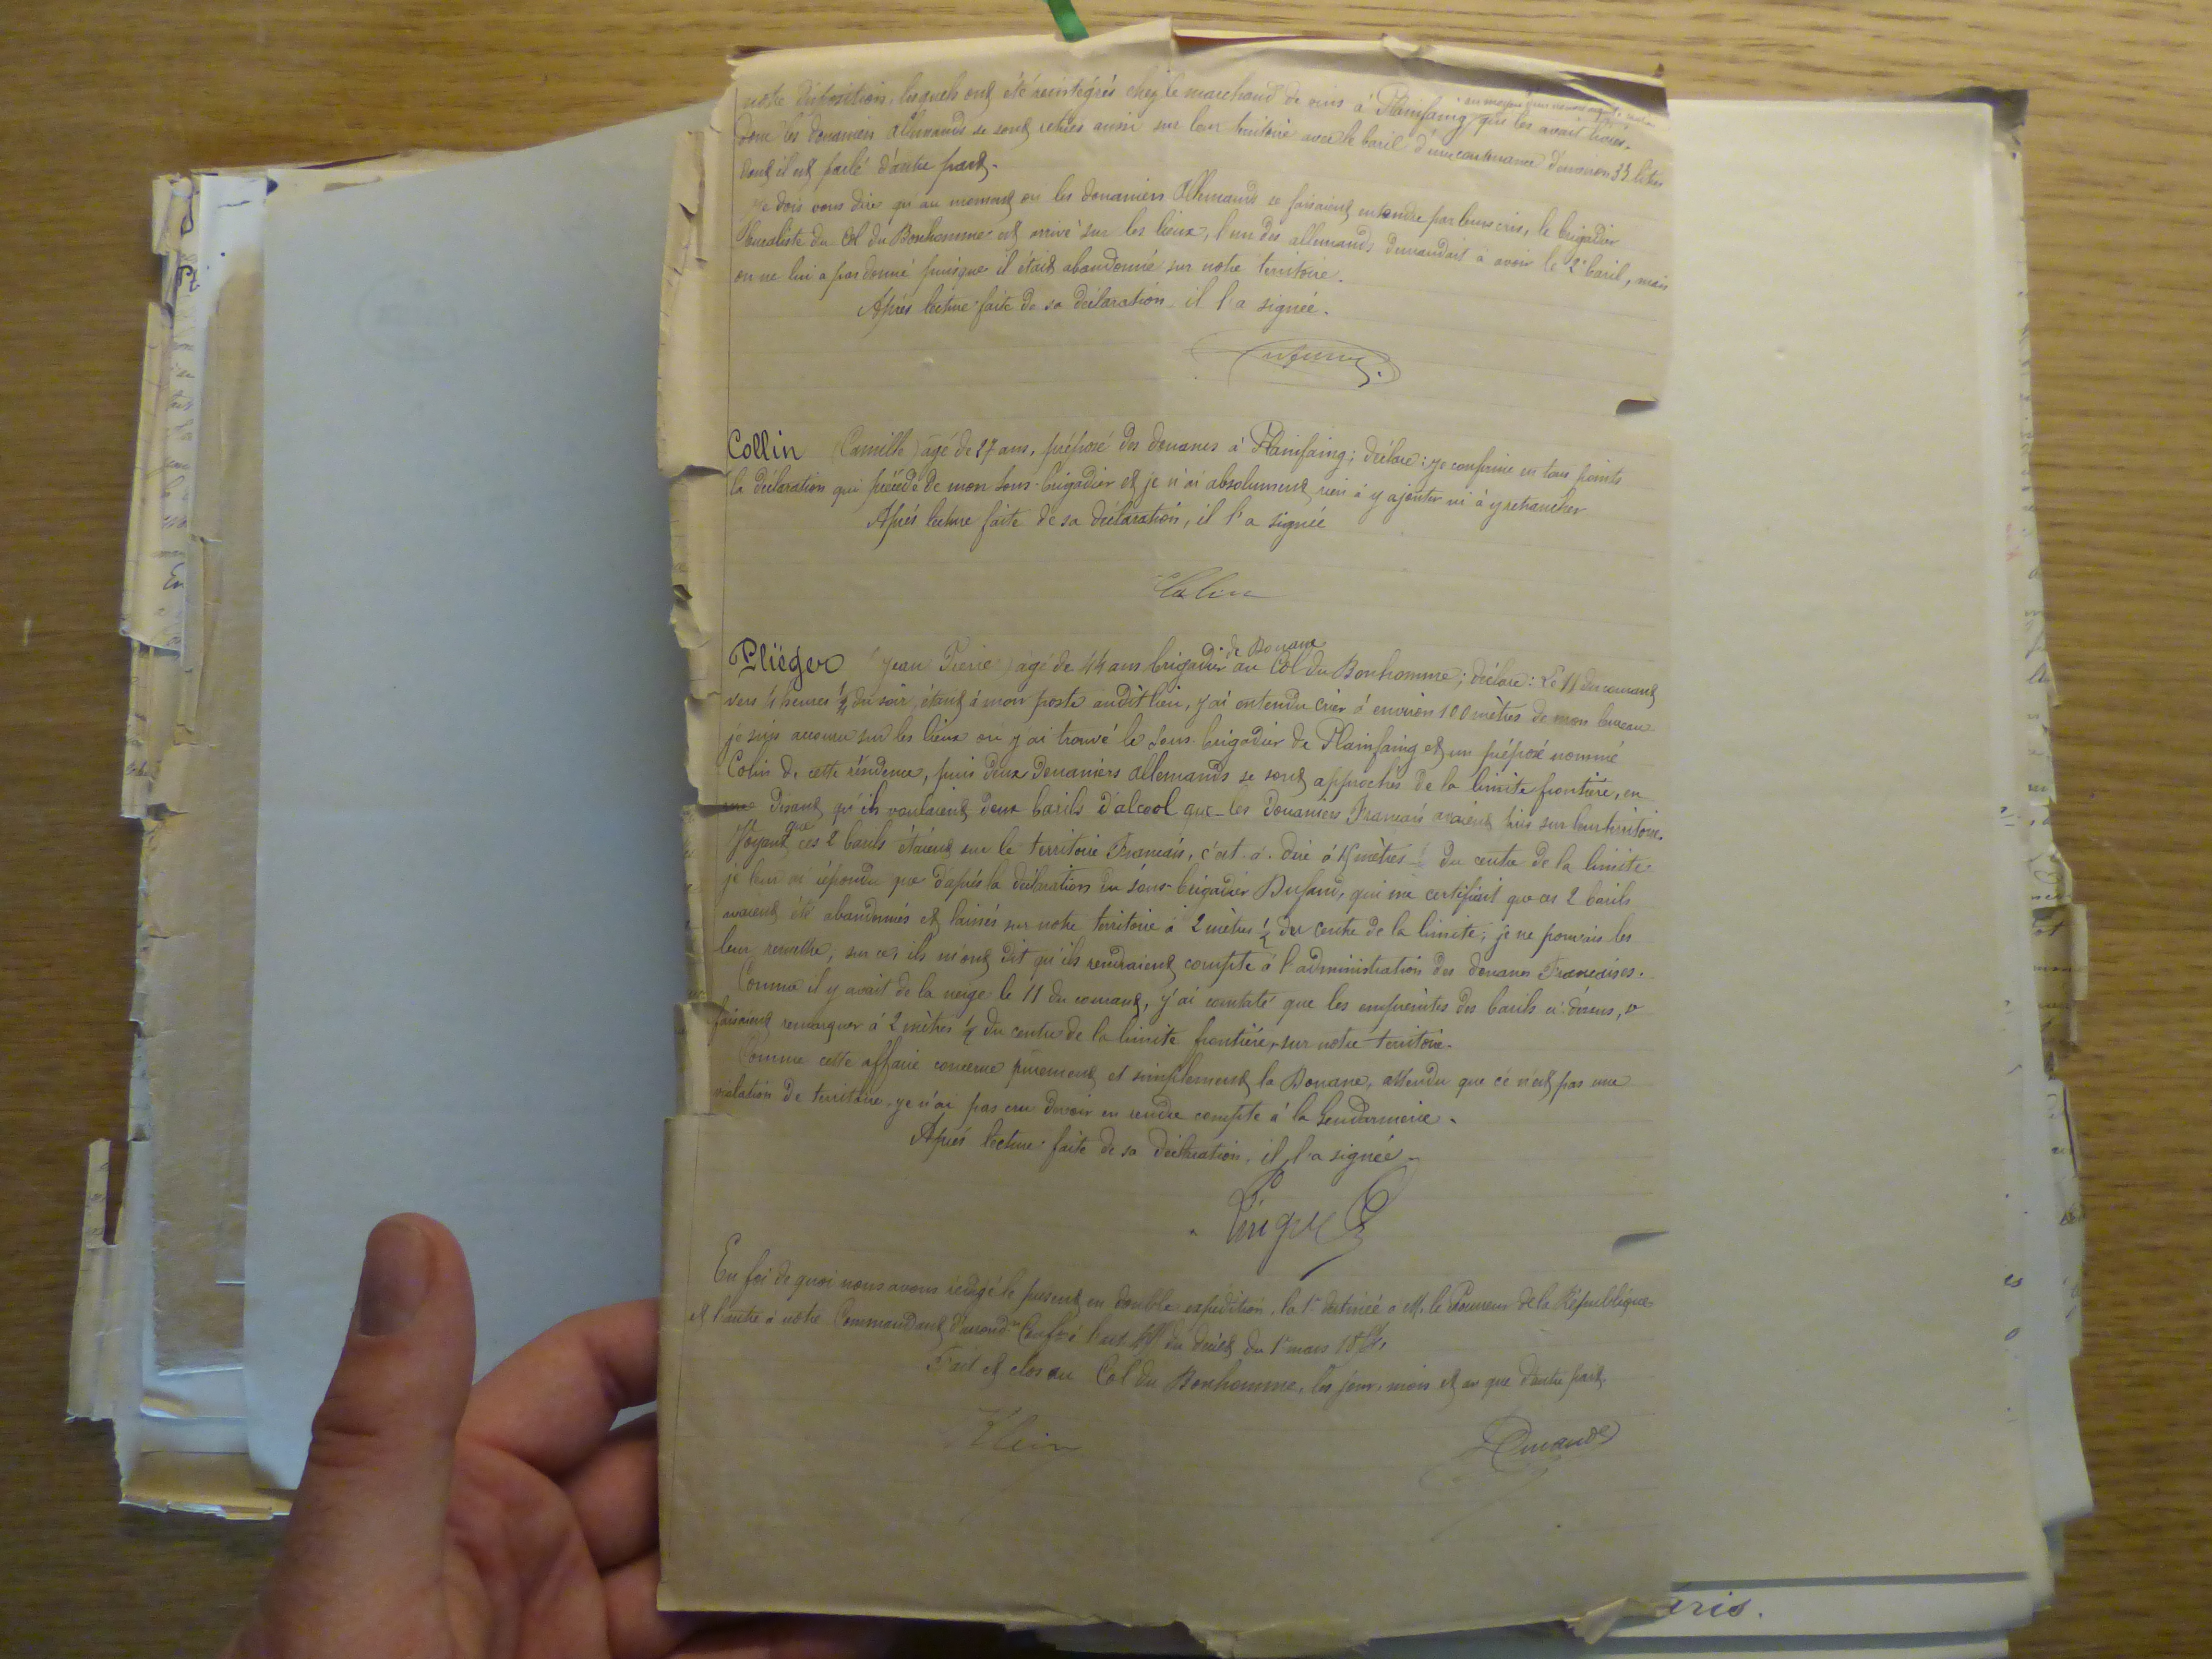 notre disposition, lesquels ont été réintégrés chez le marchand de vins à Plainfaing qui les avait livrés.
donc les douaniers allemands se sont retirés aussi sur leur territoire avec le baril d'une contenance d'environ 33 litres
dont il est parlé d'autre part.
Je dois vous dire qu'au moment où les douaniers Allemands se faisaient entendre par leurs cris, le brigadier
buraliste du Col du Bonhomme est arrivé sur les lieux, l'un des allemands demandait à avoir le 2e baril, mais
on ne lui a pas donné puisque il était abandonné sur notre territoire.
Après lecture faite de sa déclaration il l'a signée.
Collin (Camille) âgé de 27 ans, préposé des douanes à Plainfaing; déclare: je confirme en tous points
la déclaration qui précède de mon sous-brigadier et je n'ai absolument rien à y ajouter ni à y retrancher
Après lecture faite de sa déclaration, il l'a signée
Colin
de Douane
Pliéger (Jean Pierre) âgé de 44 ans brigadier au Col du Bonhomme; déclare: Le 11 du courant
vers 4 heures ½ du soir, étant à mon poste audit lieu, j'ai entendu crier à environ 100 mètres de mon bureau
je suis accouru sur les lieux où j'ai trouvé le sous-brigadier de Plainfaing et un préposé nommé
Colin de cette résidence, puis deux douaniers allemands se sont approchés de la limite frontière, en
disant qu'ils voulaient deux barils d'alcool que les Douaniers Français avaient pris sur leur territoire.
Voyant que ces 2 barils étaient sur le territoire Français, c'est-à-dire à mètres du centre de la limite
je leur ai répondu que d'après la déclaration du sous-brigadier, qui me certifiait que ces 2 barils
avaient été abandonnés et laissés sur notre territoire à 2 mètres ½ du centre de la limite; je ne pouvais les
leur remettre, sur ce, ils m'ont dit qu'ils rendraient compte à l'administration des douanes Françaises.
Comme il y avait de la neige le 11 du courant, j'ai constaté que les empreintes des barils ci-dessus, se
faisaient remarquer à 2 mètres ½ du centre de la limite frontière, sur notre territoire.
Comme cette affaire concerne purement et simplement la Douane, attendu que ce n'est pas une
violation de territoire, je n'ai pas cru devoir en rendre compte à la Gendarmerie.
Après lecture faite de sa déclaration, il l'a signée.
En foi de quoi nous avons rédigé le présent en double expédition, la 1re destinée à M. le Procureur de la République
et l'autre à notre Commandant d'arrondt Confté à l'art du décret du 1er mars
Fait et clos au Col du Bonhomme, les jour, mois et an que d'autre part.
Klein
eris.